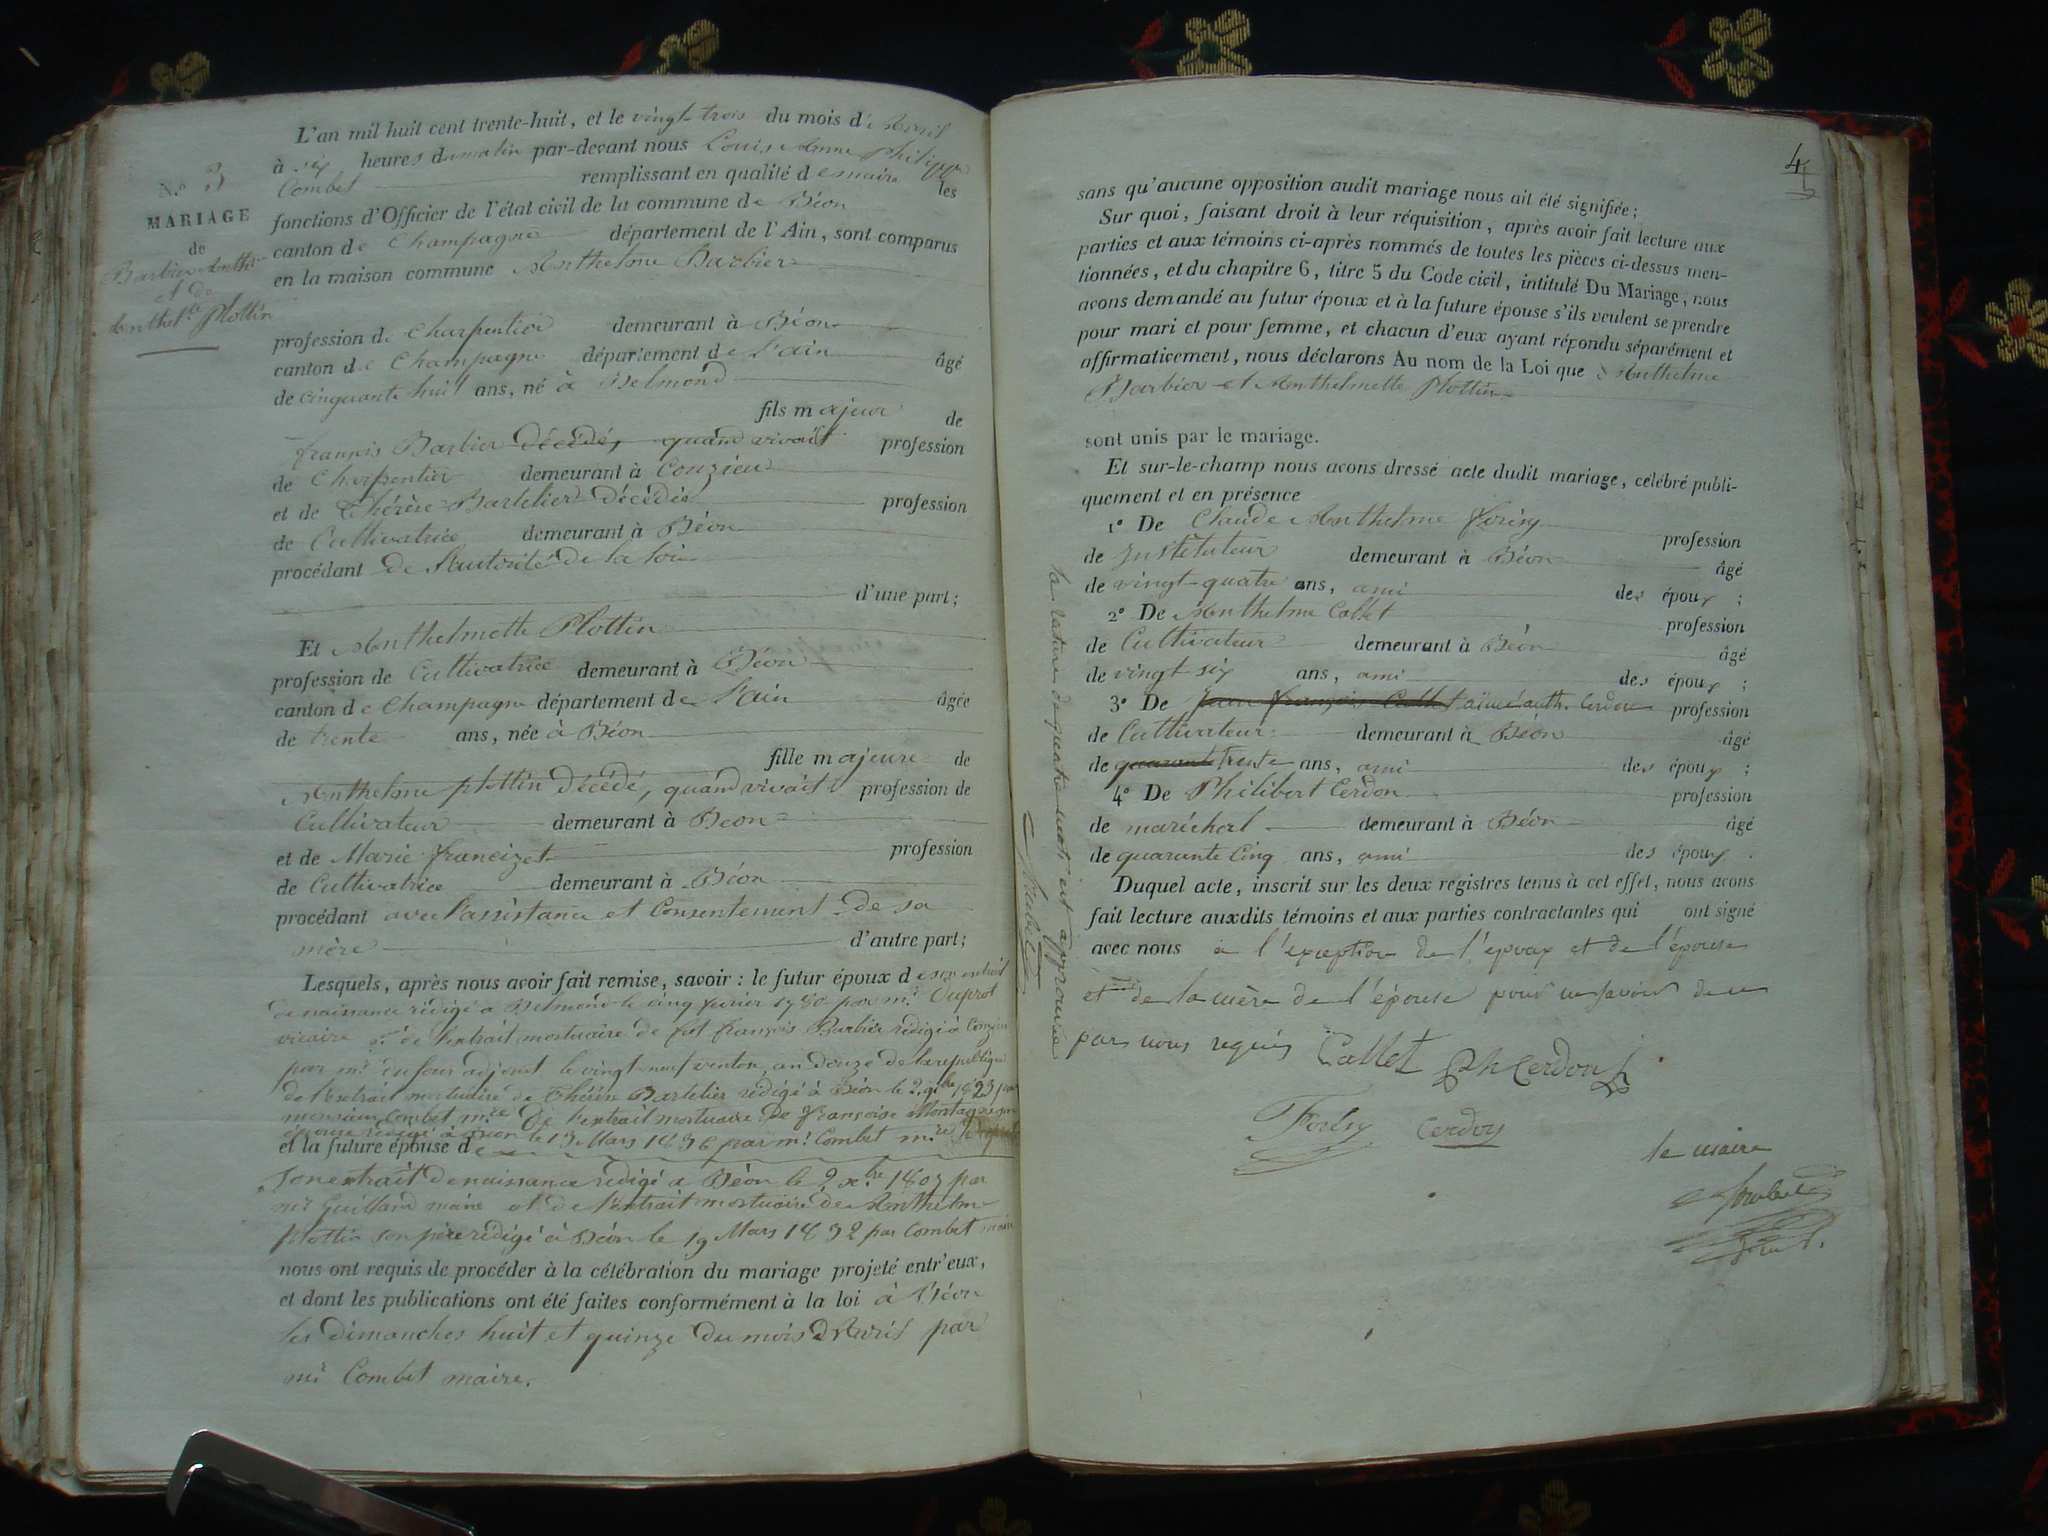 N.º 3
MARIAGE
de
Barbier Anthe
et de
Anthel.te Plottin
L'an mil huit cent trente-huit, et le vingt trois du mois d'Avril
à six heures du matin par-devant nous Louis Anne Philippe
Combet remplissant en qualité de maire les
fonctions d'Officier de l'état civil de la commune de Béon
canton de Champagne département de l'Ain, sont comparus
en la maison commune Anthelme Barbier
profession de Charpentier demeurant à Béon
canton de Champagne département de l'ain âgé
de cinquante huit ans, né à Belmond
fils majeur de
françois Barbier décédé, quand vivait profession
de Charpentier demeurant à Couzieu
et de Thérèse Bartelier décédée profession
de Cultivatrice demeurant à Béon
procédant de l'autorité de la loi
d'une part;
Et Anthelmette Plottin
profession de Cultivatrice demeurant à Béon
canton de Champagne département de l'ain âgée
de trente ans, née à Béon
fille majeure de
Anthelme plottin décédé, quand vivait profession de
Cultivateur demeurant à Béon
et de Marie francizet profession
de Cultivatrice demeurant à Béon
procédant avec l'assistance et Consentement de sa
mère d'autre part;
Lesquels, après nous avoir fait remise, savoir : le futur époux de son extrait
de naissance rédigé a Belmond le cinq 1780 par mr. Duprot
vicaire de l'extrait mortuaire de françois Barbier rédigé à Couzieu
par mr. dufour adjoint le vingt neuf ventose an douze de la republique
de l'extrait mortuaire de Thérèse Bartelier rédigé à Béon le 2 1823 par
monsieur Combet m.re De l'extrait mortuaire De françoise
rédigé à Béon le 13 Mars 1836 par mr. Combet m.re
et la future épouse de
son extrait de naissance rédigé a Béon le 2 xbre 1807 par
mr Guilland maire et de l'extrait mortuaire de Anthelme
Plottin son père rédigé à Béon le 19 Mars 1832 par Combet maire
nous ont requis de procéder à la célébration du mariage projeté entr'eux,
et dont les publications ont été faites conformément à la loi à Béon
les dimanches huit et quinze du mois d'Avril par
mr Combet maire.
4
sans qu'aucune opposition audit mariage nous ait été signifiée;
Sur quoi, faisant droit à leur réquisition, après avoir fait lecture aux
parties et aux témoins ci-après nommés de toutes les pièces ci-dessus men-
tionnées, et du chapitre 6, titre 5 du Code civil, intitulé Du Mariage, nous
avons demandé au futur époux et à la future épouse s'ils veulent se prendre
pour mari et pour femme, et chacun d'eux ayant répondu séparément et
affirmativement, nous déclarons Au nom de la Loi que Anthelme
Barbier et Anthelmette Plottin
sont unis par le mariage.
Et sur-le-champ nous avons dressé acte dudit mariage, célébré publi-
quement et en présence
1º De Claude Anthelme
profession
de Instituteur demeurant à Béon âgé
de vingt-quatre ans, ami des époux ;
2º De Anthelme Callet profession
de Cultivateur demeurant à Béon âgé
de vingt six ans, ami des époux ;
3º De Jean françois Callet aimé anth. Cerdon profession
de Cultivateur demeurant à Béon âgé
de quarante trente ans, ami des époux ;
4º De Philibert Cerdon profession
de maréchal demeurant à Béon âgé
de quarante Cinq ans, ami des époux .
Duquel acte, inscrit sur les deux registres tenus à cet effet, nous avons
fait lecture auxdits témoins et aux parties contractantes qui ont signé
avec nous à l'exception de l'époux et de l'épouse
et de la mère de l'épouse pour ne savoir de ce
par nous requis Callet Ph Cerdon
Cerdon
le maire
Combet
la rature de quatre mots est approuvée
Combet